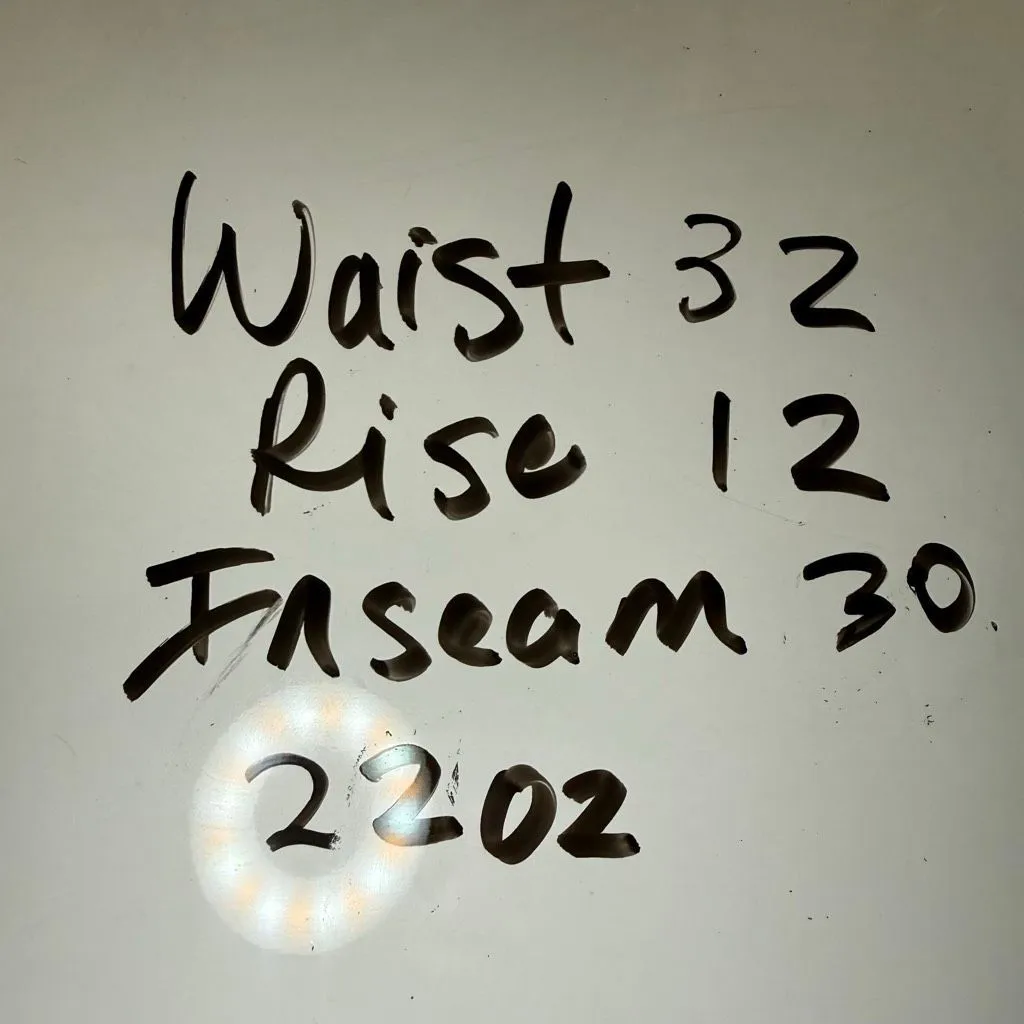 Waist 32
Rise 12
Inseam 30
22oz